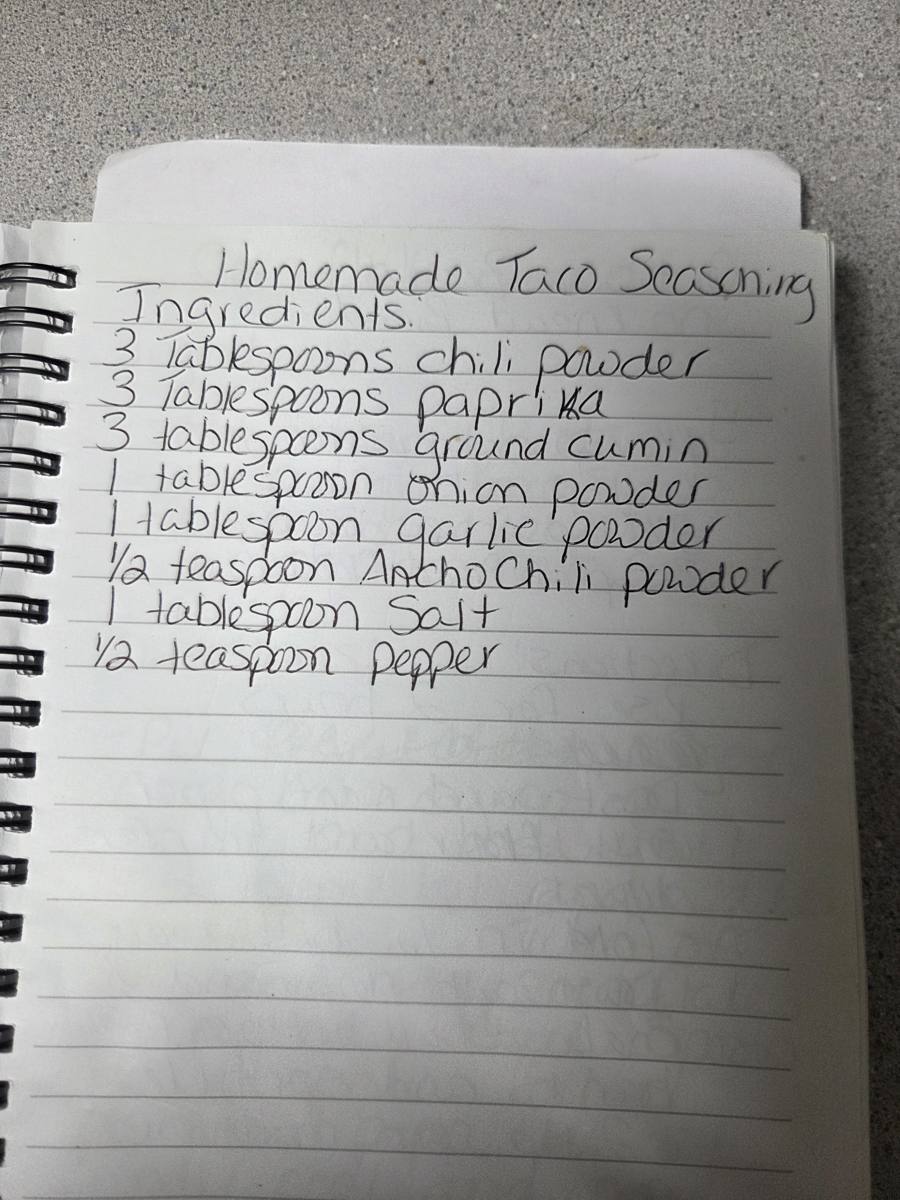 Homemade Taco Seasoning
Ingredients.
3 Tablespoons chili powder
3 Tablespoons paprika
3 tablespoons ground cumin
1 tablespoon onion powder
1 tablespoon garlic powder
1/2 teaspoon Ancho Chili powder
1 tablespoon Salt
1/2 teaspoon pepper